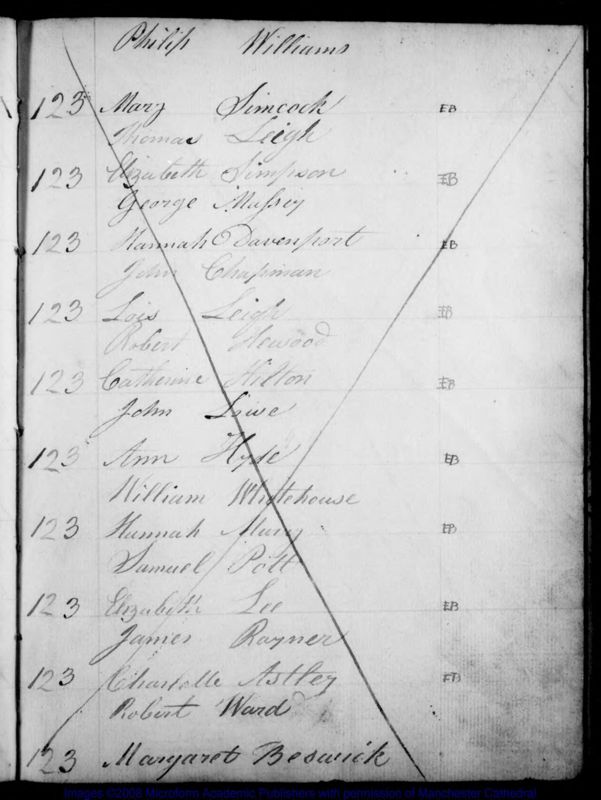 Philip Williams
123 Mary Simcock EB
Thomas Leigh
123 Elizabeth Simpson EB
George Massey
123 Hannah Davenport EB
John Chapman
123 Lois Leigh EB
Robert Hewood
123 Catherine Hilton EB
John Lowe
123 Ann Hyde EB
William Whitehouse
123 Hannah EB
Samuel Pott
123 Elizabeth Lee EB
James Rayner
123 Charlotte Astley EB
Robert Ward
123 Margaret Beswick
Images ©2008 Microform Academic Publishers with permission of Manchester Cathedral